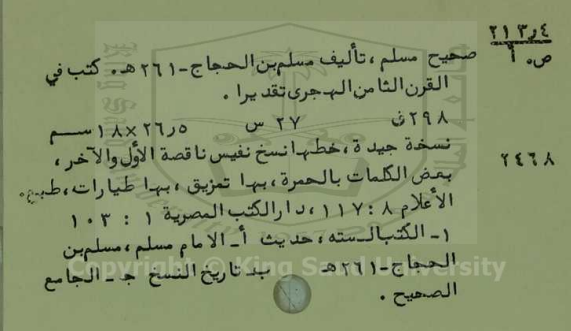 ٢١٣ر٤
ص٠ أ
صحيح مسلم ، تأليف مسلم بن الحجاج -٢٦١هـ. كتب في
القرن الثامن الهجري تقديرا .
٢٩٨ق ٢٧ س ٢٦ر٥×١٨ سم
٢٤٦٨
نسخة جيدة ، خطها نسخ نفيس ناقصة الأول والآخر ،
بعض الكلمات بالحمرة ، بها تمزيق ، بها طيارات ، طبع.
الأعلام ٨ : ١١٧ ، دار الكتب المصرية ١ : ١٠٣
١ـ الكتب السته ، حديث أ ـ الامام مسلم ، مسلم بن
الحجاج -٢٦١هـ ب ـ تاريخ النسخ ج ـ الجامع
الصحيح .
Copyright © King Saud University